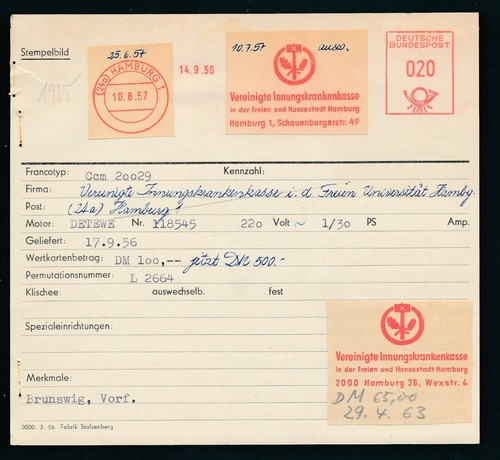 Stempelbild
25.6.57
(24a) HAMBURG 1
10.8.57
14.9.56
10.7.57 ausw.
Vereinigte Innungskrankenkasse
in der Freien und Hansestadt Hamburg
Hamburg 1, Schauenburgerstr. 49
DEUTSCHE
BUNDESPOST
020
1925
Francotyp: Ccm 20029 Kennzahl:
Firma: Vereinigte Innungskrankenkasse i. d. Freien Universität Hambg.
Post: (24a) Hamburg 1
Motor: DETEWE Nr. 118545 220 Volt ~ 1/30 PS Amp.
Geliefert: 17.9.56
Wertkartenbetrag: DM 100,-- jetzt DM 500.-
Permutationsnummer: L 2664
Klischee: auswechselb. fest
Spezialeinrichtungen:
Vereinigte Innungskrankenkasse
in der Freien und Hansestadt Hamburg
2000 Hamburg 36, Wexstr. 4
DM 65,00
29.4.63
Merkmale:
Brunswig, Vorf.
3000. 3. 56. Fabrik Stolzenberg